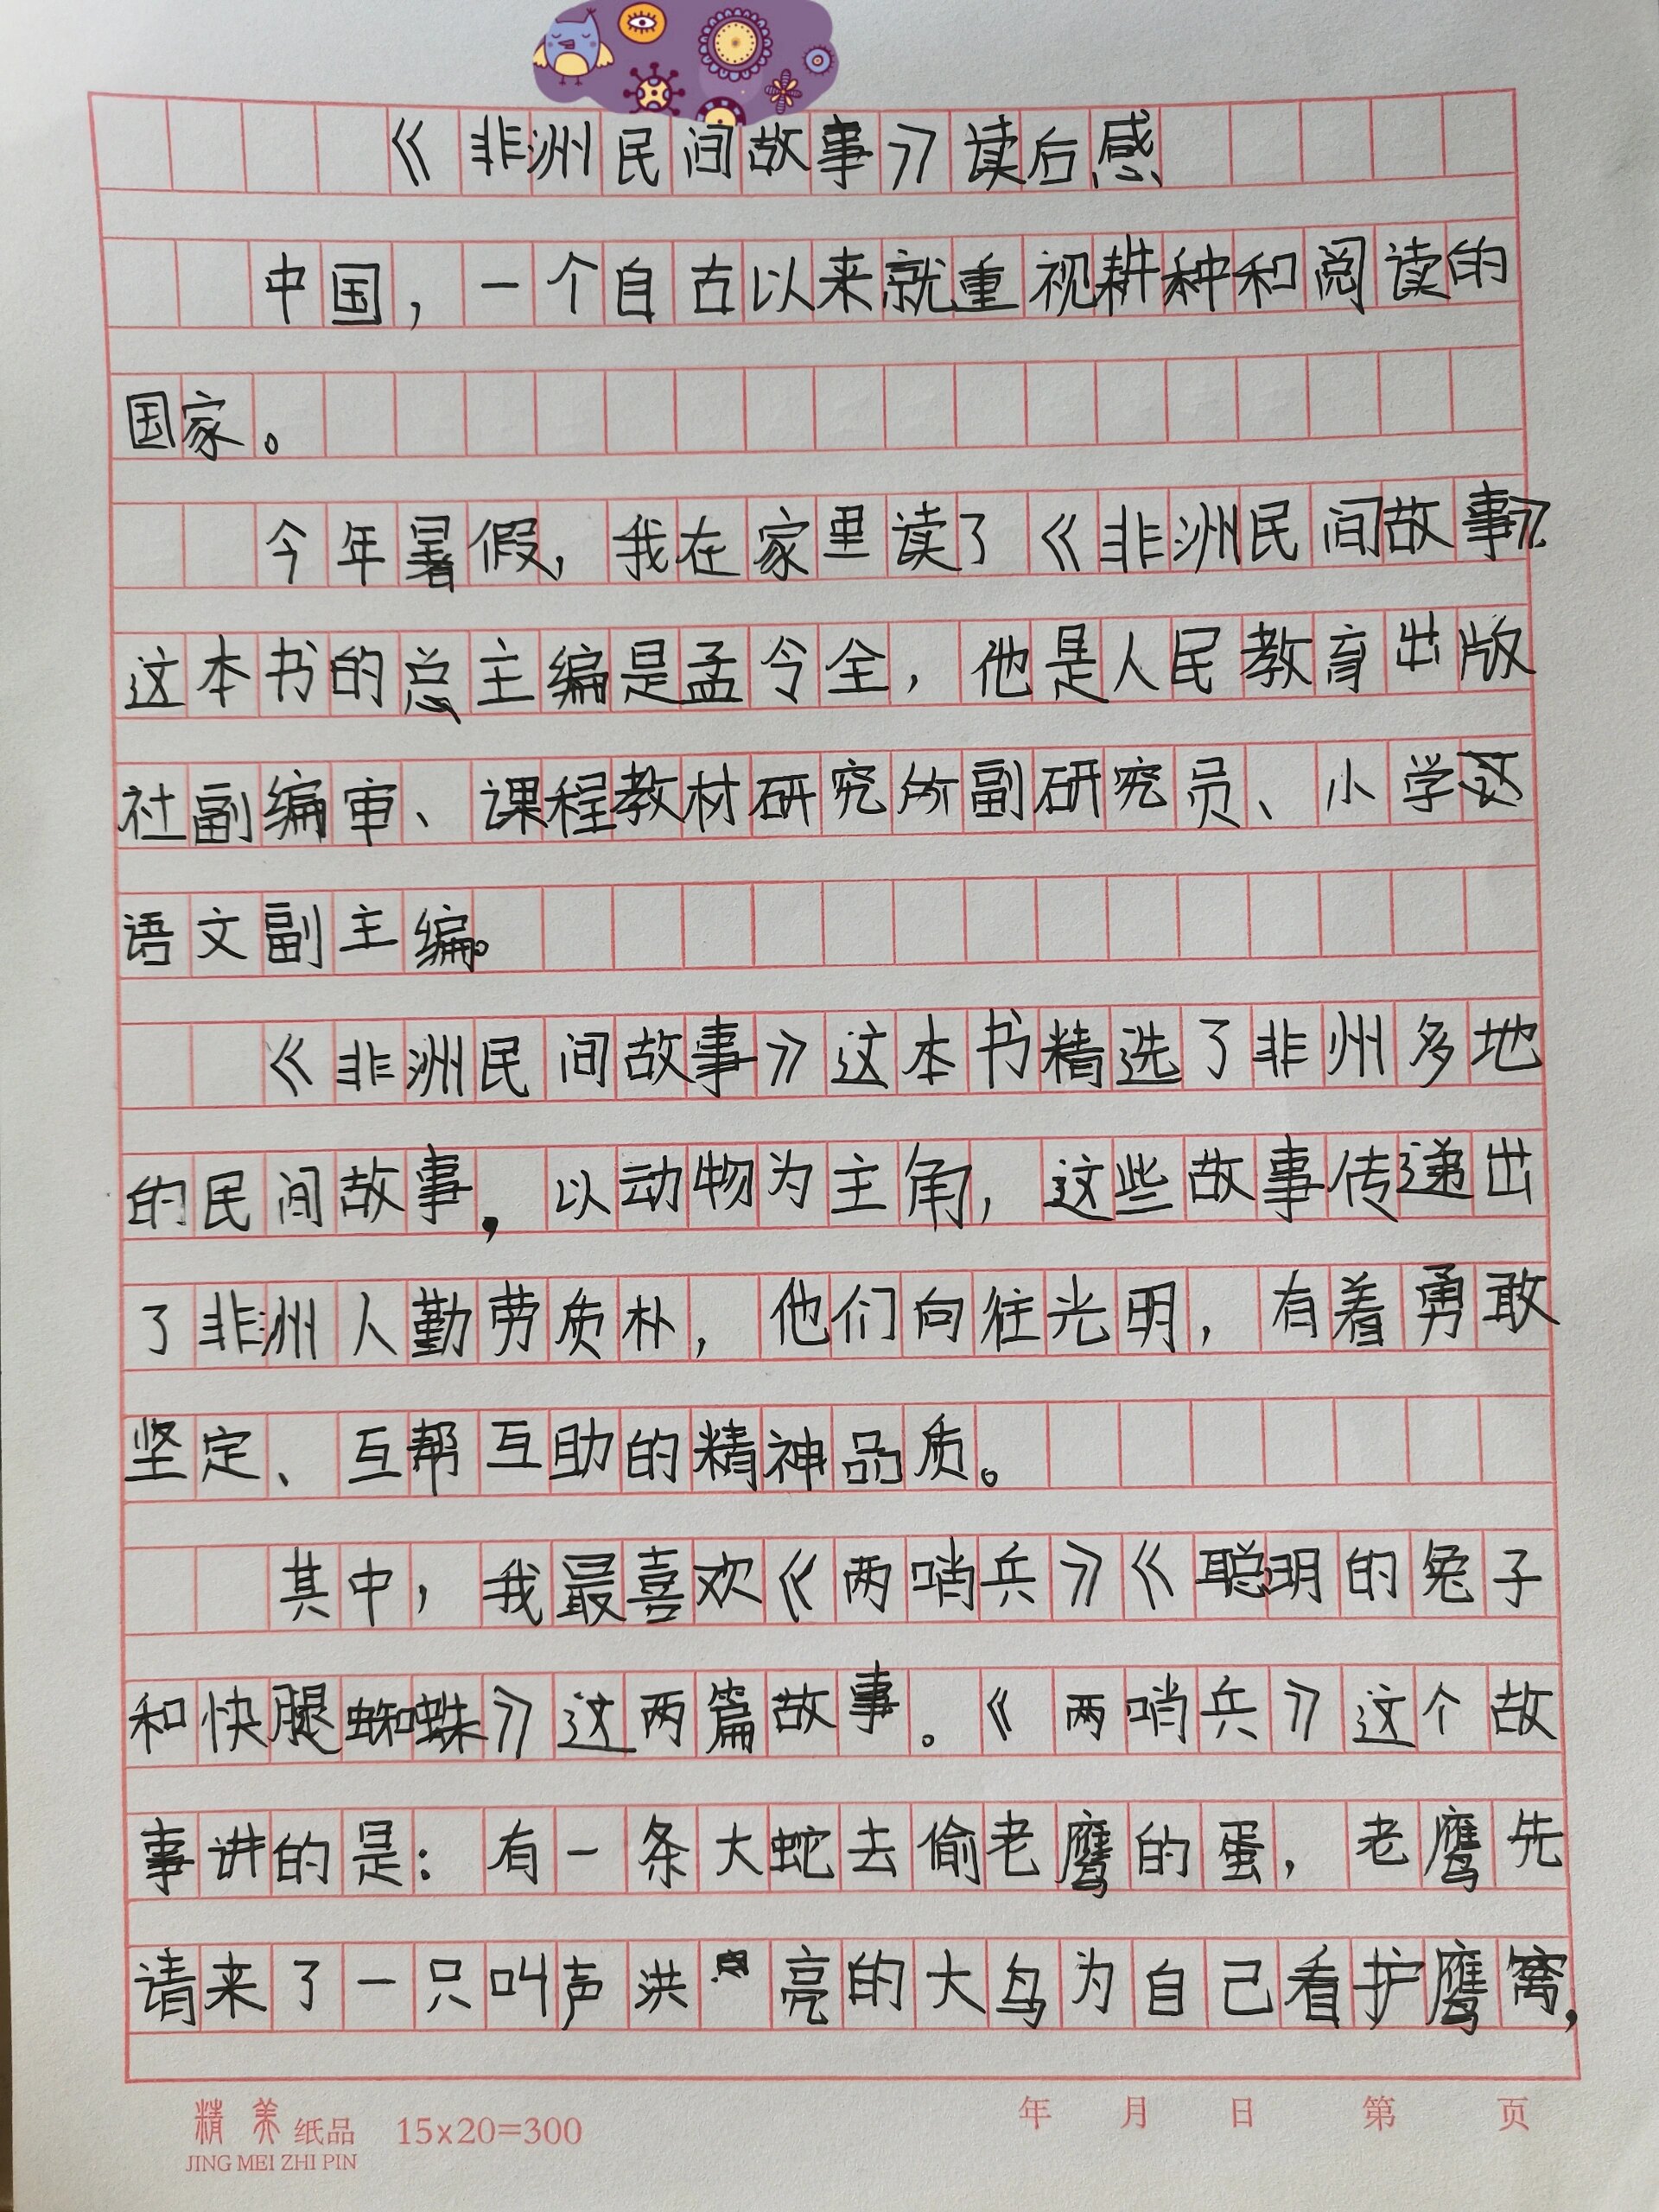 《非洲民间故事》读后感
中国，一个自古以来就重视耕种和阅读的
国家。
今年暑假，我在家里读了《非洲民间故事》
这本书的总主编是孟令全，他是人民教育出版
社副编审、课程教材研究所副研究员、小学
语文副主编。
《非洲民间故事》这本书精选了非州多地
的民间故事，以动物为主角，这些故事传递出
了非洲人勤劳质朴，他们向往光明，有着勇敢
坚定、互帮互助的精神品质。
其中，我最喜欢《两哨兵》《聪明的兔子
和快腿蜘蛛》这两篇故事。《两哨兵》这个故
事讲的是：有一条大蛇去偷老鹰的蛋，老鹰先
请来了一只叫声洪亮的大鸟为自己看护鹰窝，
精美纸品 15x20=300 年 月 日 第 页
JING MEI ZHI PIN